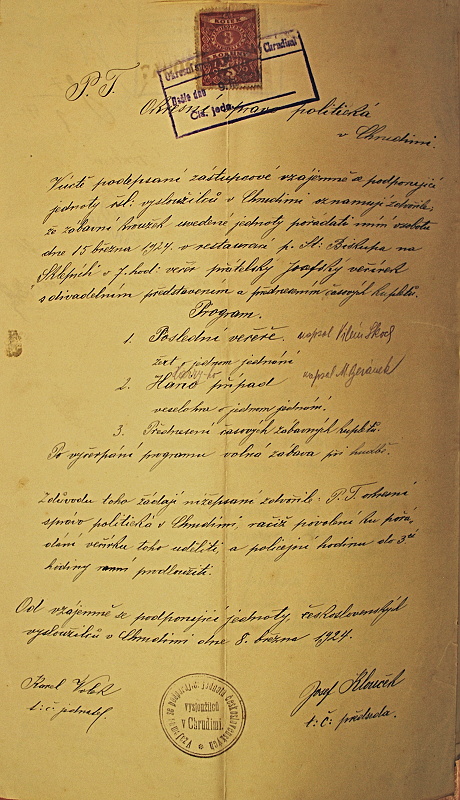 KOLEK
3
Chrudimi
Došlo dne 9.
Čís. jedn.
P. T.
Okresní správa politická
v Chrudimi.
Úctě podepsaní zástupcové vzájemně se podporující
jednoty čsl. vysloužilců v Chrudimi oznamují zdvořile:
že zábavní kroužek uvedené jednoty pořádati míní v sobotu
dne 15 března 1924. v restauraci p. St. Biskupa na
"Sklepích" v 7. hod. večer přátelský Josefský večírek
s divadelním představením a přednesením časových kupletů.
Program.
1. Poslední večeře. napsal Vilém Skoch
žert o jednom jednání
2. případ napsal M. Beránek
veselohra o jednom jednání.
3. Přednesení časových zábavných kupletů.
Po vyčerpání programu volná zábava při hudbě.
Z důvodu toho žádají nížepsaní zdvořile: P. T. okresní
správo politická v Chrudimi, račiž povolení ku pořá-
dání večírku toho uděliti, a policejní hodinu do 3 cí
hodiny ranní prodloužiti.
Od vzájemně se podporující jednoty československých
vysloužilců v Chrudimi dne 8. března 1924.
Karel
t. č. jednatel.
Vzájemně se podporující jednota československých
vysloužilců
v Chrudimi.
Josef Klouček
t. č. předseda.